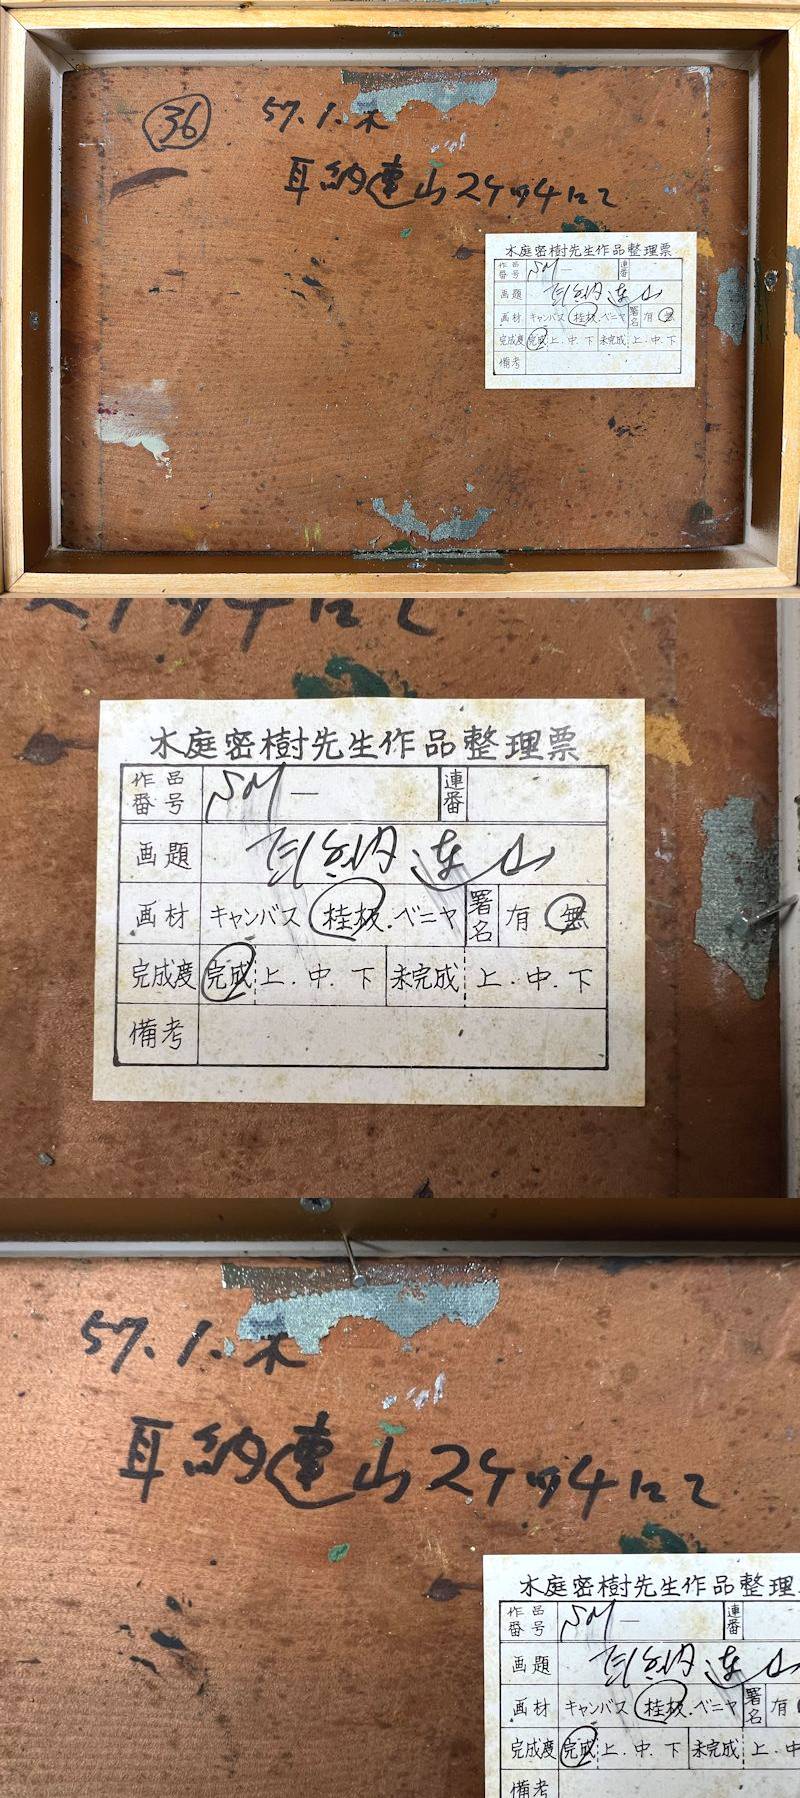 36
57.1.末
耳納連山スケッチにて
木庭密樹先生作品整理票
作品番号 SM― 連番
画題 耳納連山
画材 キャンバス・桂板・ベニヤ 署名 有 無
完成度 完成 上・中・下 未完成 上・中・下
備考
スケッチにて
木庭密樹先生作品整理票
作品番号 SM― 連番
画題 耳納連山
画材 キャンバス 桂板・ベニヤ 署名 有 無
完成度 完成 上・中・下 未完成 上・中・下
備考
57.1.末
耳納連山スケッチにて
木庭密樹先生作品整理
作品番号 SM― 連番
画題 耳納連山
画材 キャンバス 桂板・ベニヤ 署名 有
完成度 完成 上・中・下 未完成 上・中
備考